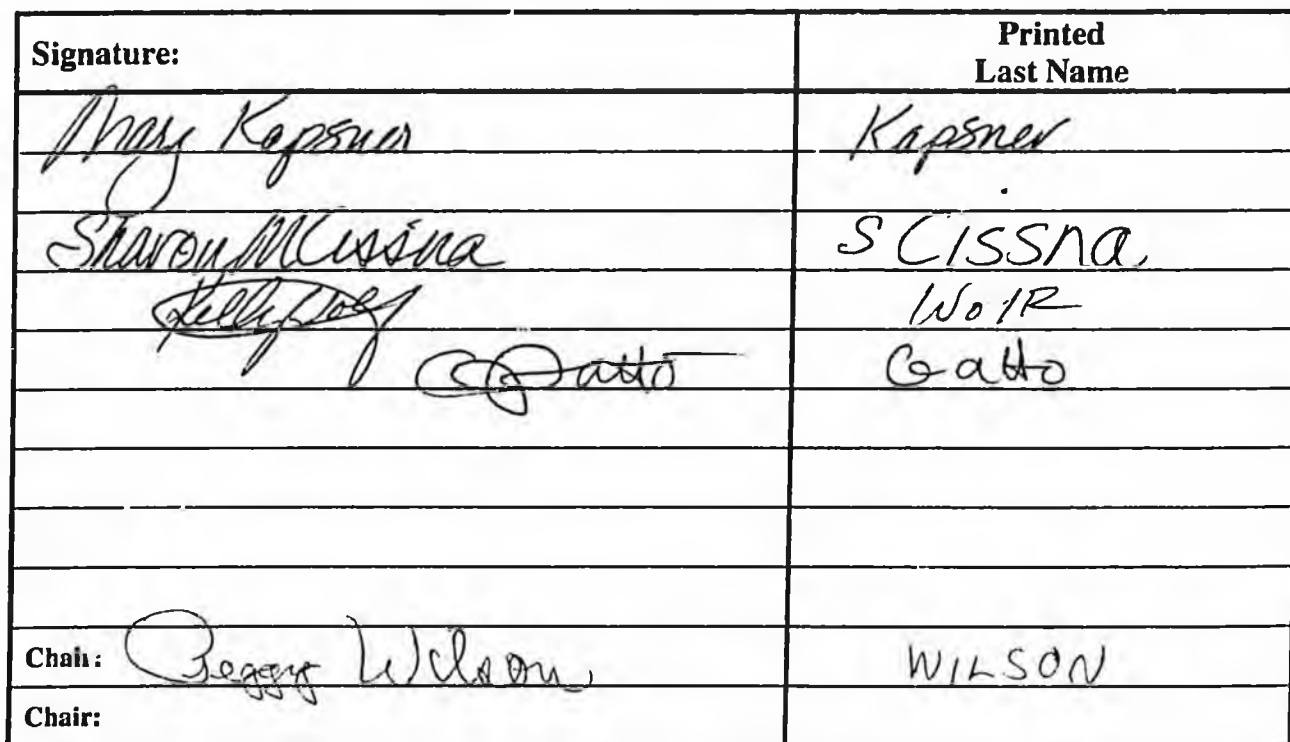 Signature: Printed Last Name
Mary Kapsner Kapsner
Sharon M Cissna S Cissna
Kelly
Gatto Gatto
Chair: Peggy Wilson WILSON
Chair: